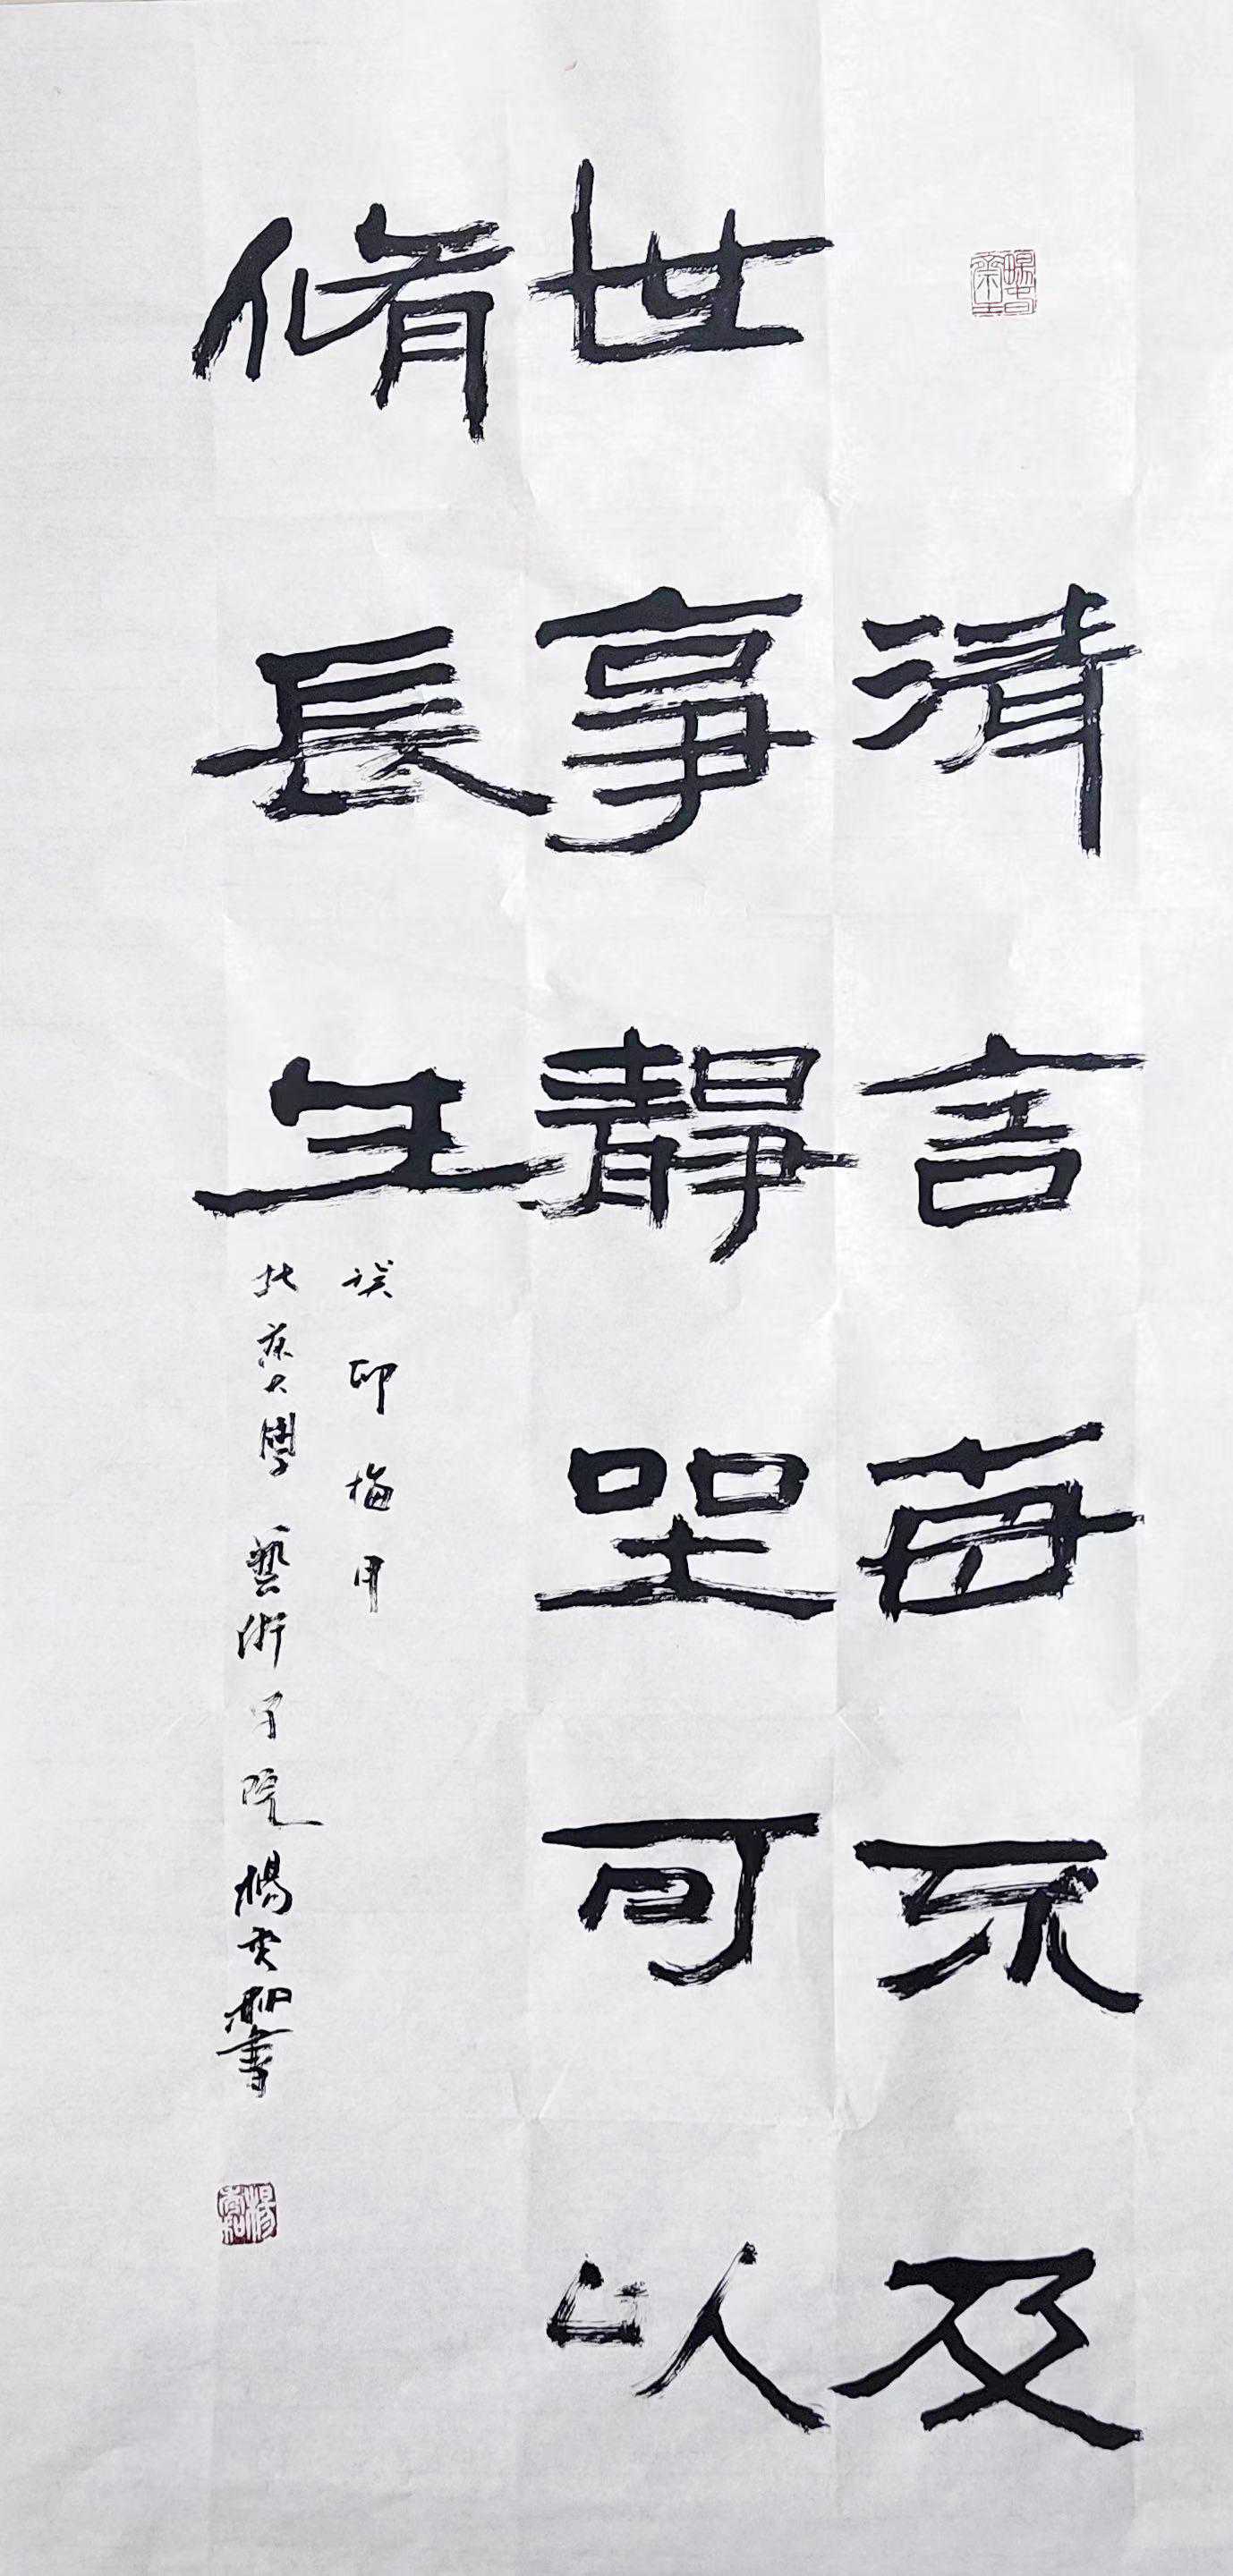 清言每不及
世事靜坐可以
脩長生
癸卯梅月
北京大學藝術學院楊奕和書